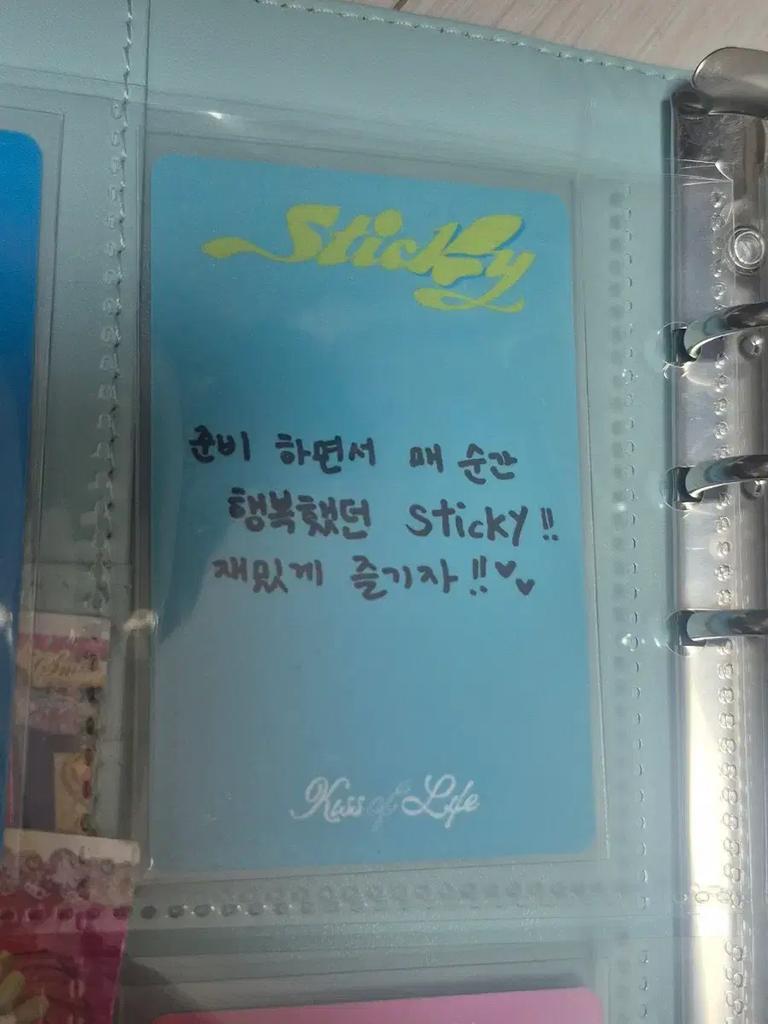 Sticky
준비 하면서 매 순간
행복했던 sticky!!
재밌게 즐기자!!♥♥
Kiss of Life